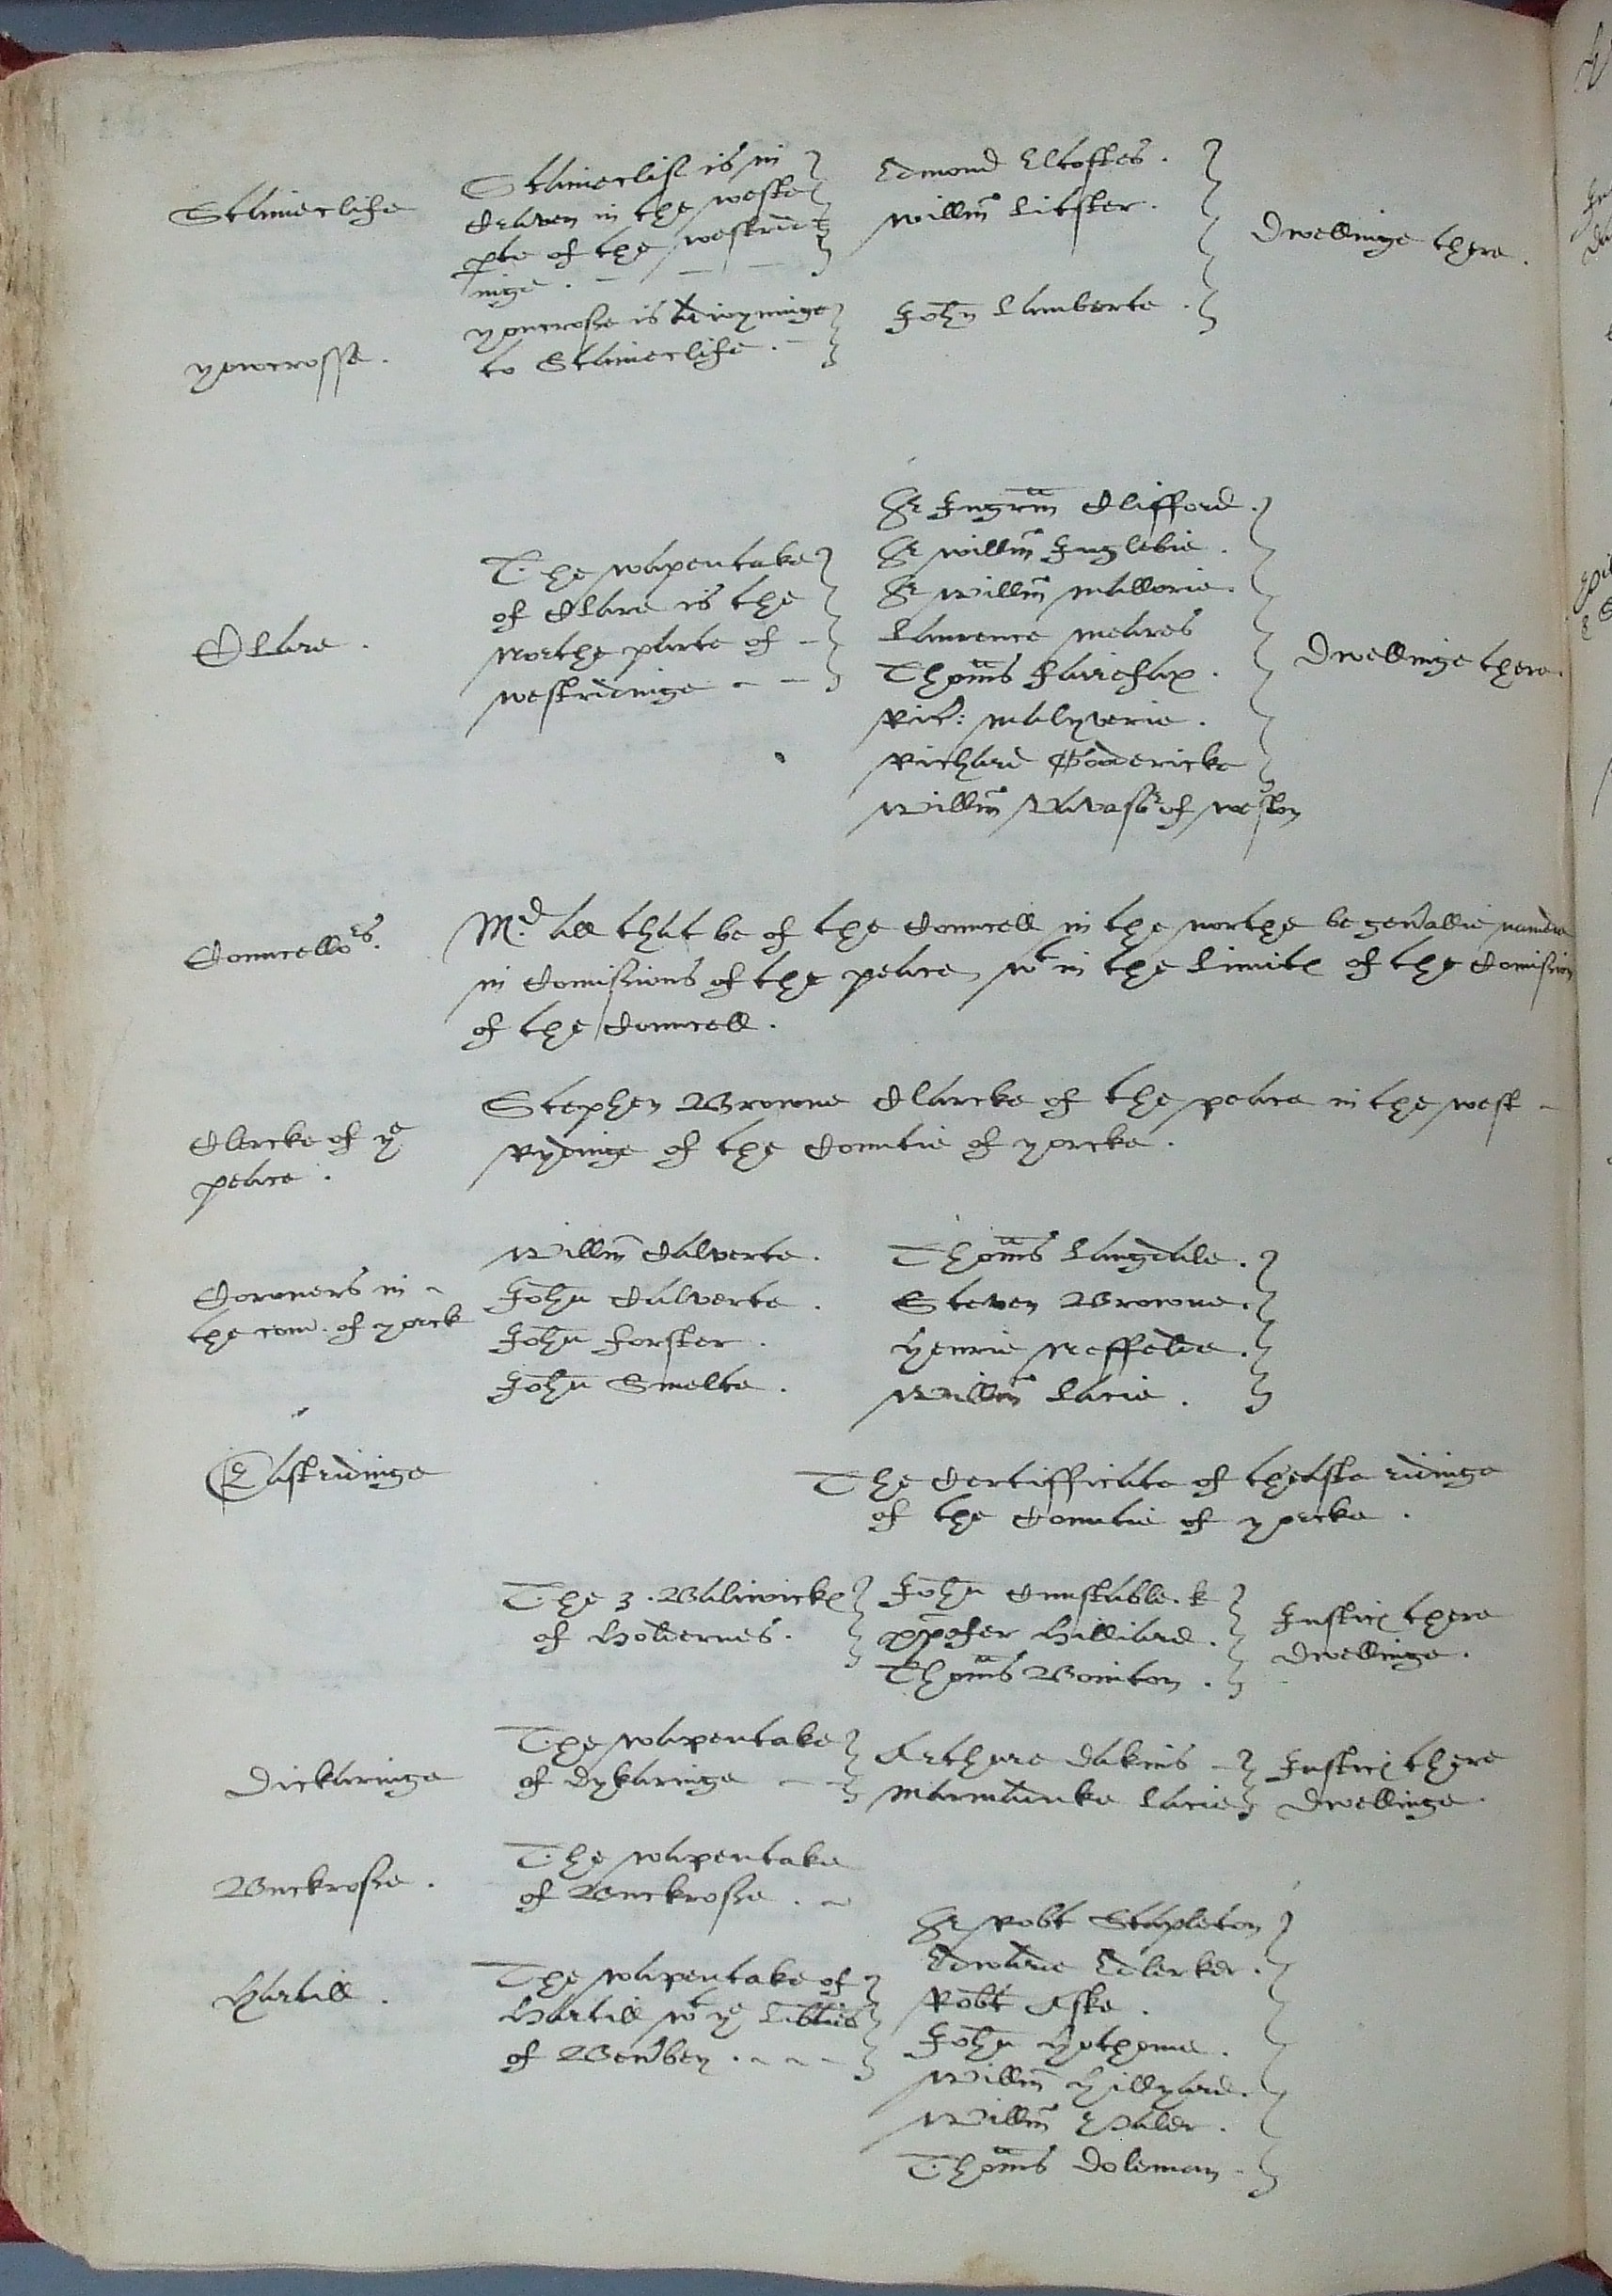 Staineclife
Staineclif is in
Craven in the weste
pte of the westrid
inge .
Edmond Eltoftes .
Willm Litster .
Dwellinge there .
yowcrosse .
yowcrosse is adioyninge
to Staineclife .
John Lamberte .
Clare .
The wapentake
of Clare is the
Northe parte of
westridinge
Sr Ingrm Clifford .
Sr Willm Inglebie .
Sr Willm Mallorie .
Laurence Meares
Thoms Fairefax .
Ric: Malyverie .
Richard Gooderick
Willm Vavasor of Weston
Dwellinge there .
Councellors .
Md all that be of the Councell in the northe be genallie named
in Comissions of the peace wt in the Limites of the Comission
of the Councell .
Clercke of ye
peace .
Stephen Browne Clarcke of the peace in the west
Rydinge of the Countie of yorcke .
Coroners in
the com . of yorck
Willm Calverte .
John Calverte .
John Forster .
John Smelte .
Thoms Langdale .
Steven Browne .
Henrie Neffelde .
Willm Lacie .
Eastridinge
The Certifficate of theaste ridinge
of the Countie of yorcke .
The 3 . Baliwickes
of Holdernes .
John Cunstable . k
xpofer Hilliard .
Thoms Bointon .
Justices there
dwellinge .
Dickaringe
The wapentake
of Dykaringe
Arthure Dakins
Marmaduke Lacie
Justices there
Dwellinge .
Buckrosse .
The wapentake
of Buckrosse .
Hartill .
The wapentake of
Hartill wt ye Libties
of
Sr Robt Stapleton
Edwarde Edlerker .
Robt Aske .
John Hothome .
Willm Hillyard .
Willm
Thoms Doleman .